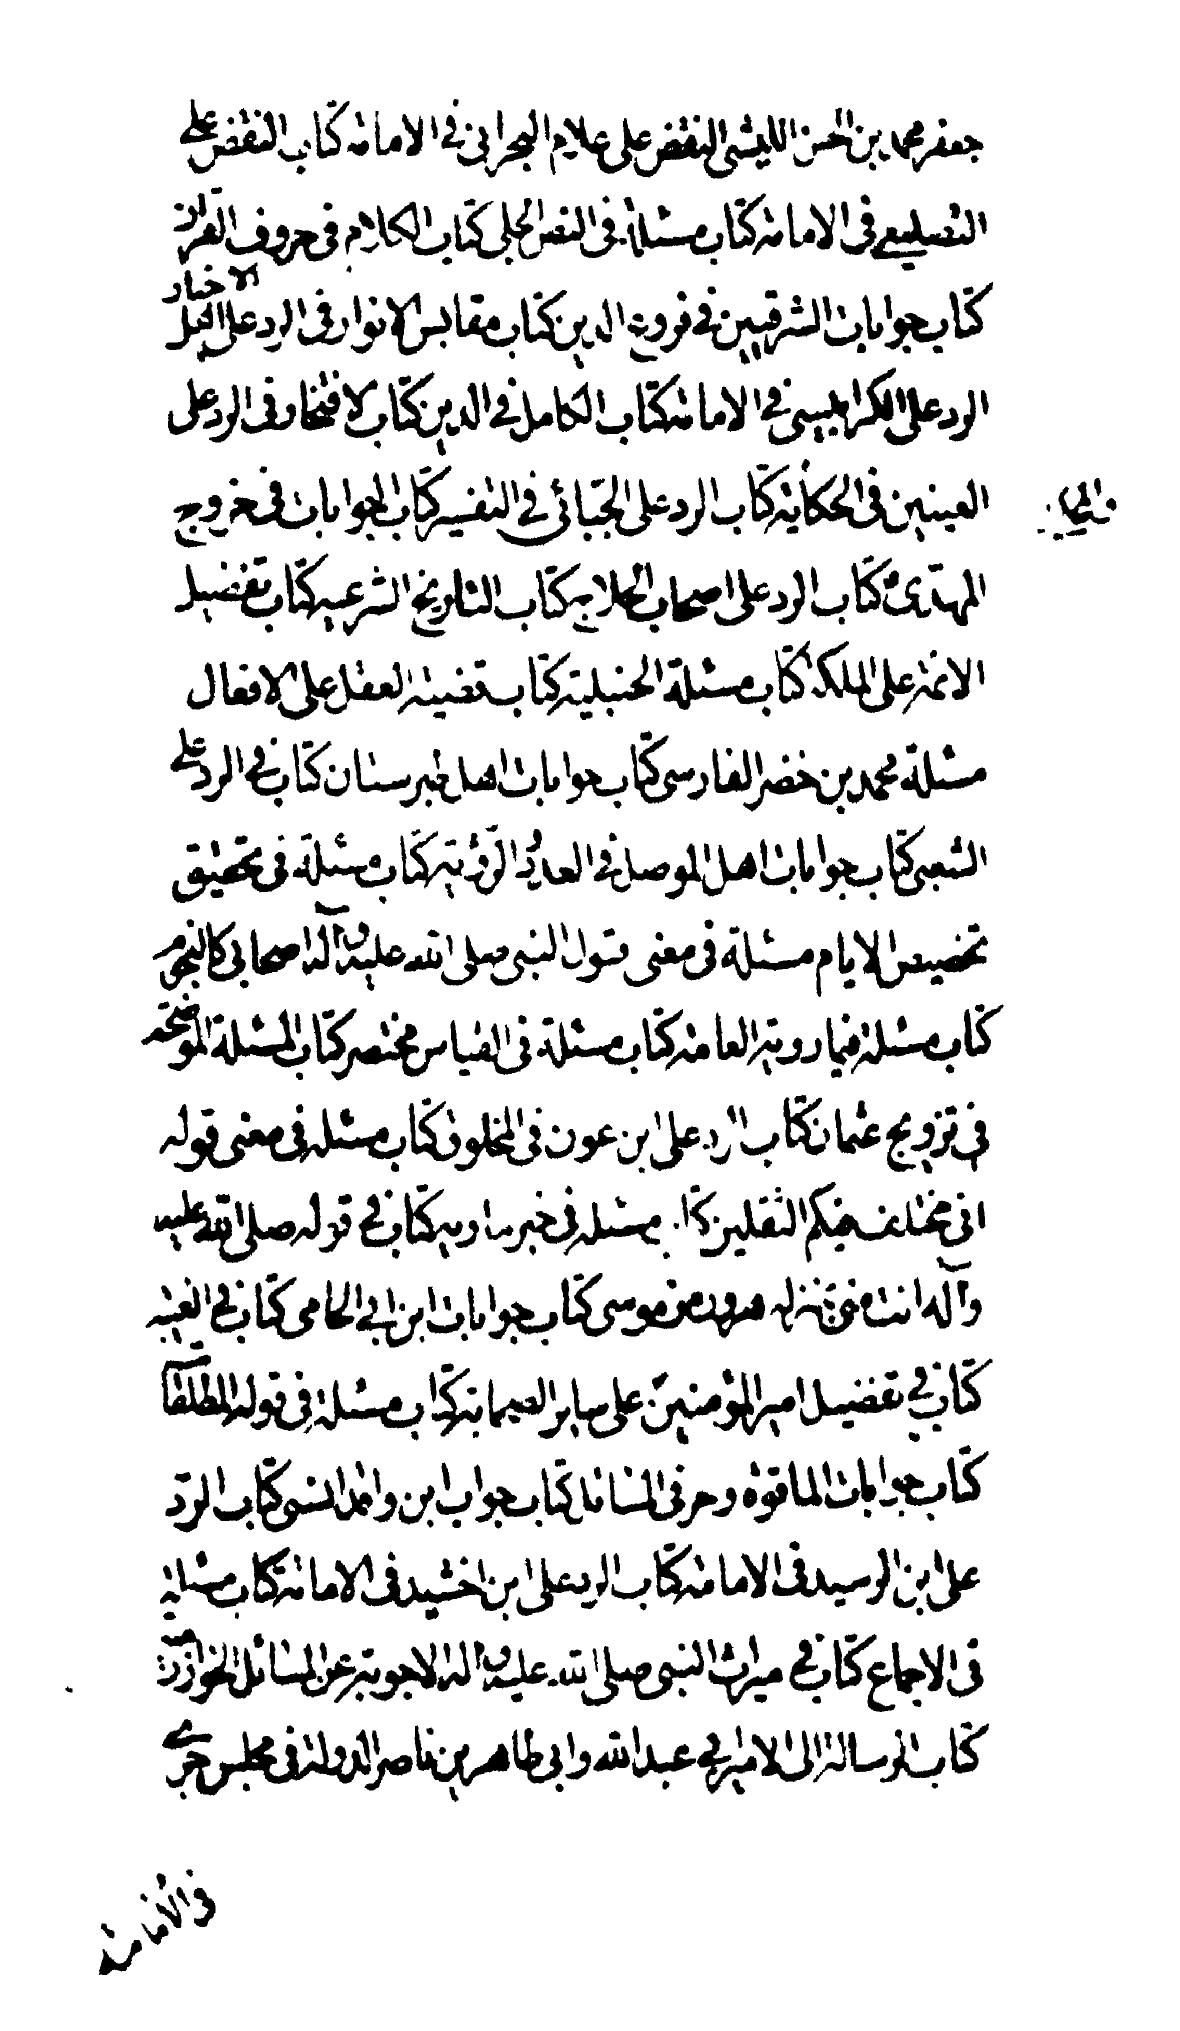 جعفر محمد بن الحسن الليثى النقض على غلام البحرانى فى الامامة كتاب النقض على
النصليعى فى الامامة كتاب مسئلة فى النص الجلى كتاب الكلام فى حروف القران
كتاب جوابات الشرقيين فى فروع الدين كتاب مقابس الانوار فى الرد على اهل الاخبار
الرد على الكرابيسى فى الامامة كتاب الكامل فى الدين كتاب الافتخار فى الرد على
العينين فى الحكاية كتاب الرد على الجبائى فى التفسير كتاب الجوابات فى خروج
المهدى كتاب الرد على اصحاب الحلاج كتاب التاريخ الشرعية كتاب تفضيل
الائمة على الملئكة كتاب مسئلة الحنبلية كتاب قضية العقل على الافعال
مسئلة محمد بن خضر الفارسى كتاب جوابات اهل طبرستان كتاب فى الرد على
الشعبى كتاب جوابات اهل الموصل فى العدد والرؤية كتاب مسئلة فى تحقيق
تخصيص الايام مسئلة فى معنى قول النبى صلى الله عليه وآله اصحابى كالنجوم
كتاب مسئلة فيما روته العامة كتاب مسئلة فى القياس مختصر كتاب المسئلة الموضحة
فى تزويج عثمان كتاب الرد على ابن عون فى المخلوق كتاب مسئلة فى معنى قوله
انى مخلف فيكم الثقلين كتاب مسئلة فى خبر مارية كتاب فى قوله صلى الله عليه
وآله انت منى بمنزلة هرون من موسى كتاب جوابات ابن الحمامى كتاب فى الغيبة
كتاب فى تفضيل امير المؤمنين على ساير الصحابة كتاب مسئلة فى قوله المطلقات
كتاب جوابات المافروخى فى المسائل كتاب جواب ابن واقد السنى كتاب الرد
على ابن الرسيد فى الامامة كتاب الرد على ابن اخشيد فى الامامة كتاب مسئلة
فى الاجماع كتاب فى ميراث النبى صلى الله عليه وآله الاجوبة عن المسائل الخوارزمية
كتاب الرسالة الى الامير ابى عبدالله وابى طاهر بن ناصر الدولة فى مجلس جرى
فى الامامة